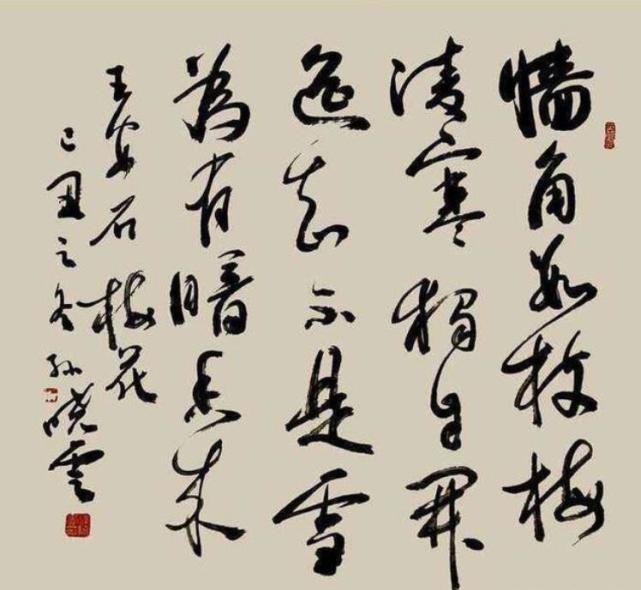 墙角数枝梅
凌寒独自開
遥知不是雪
為有暗香来
王安石梅花
己丑之冬孙晓云